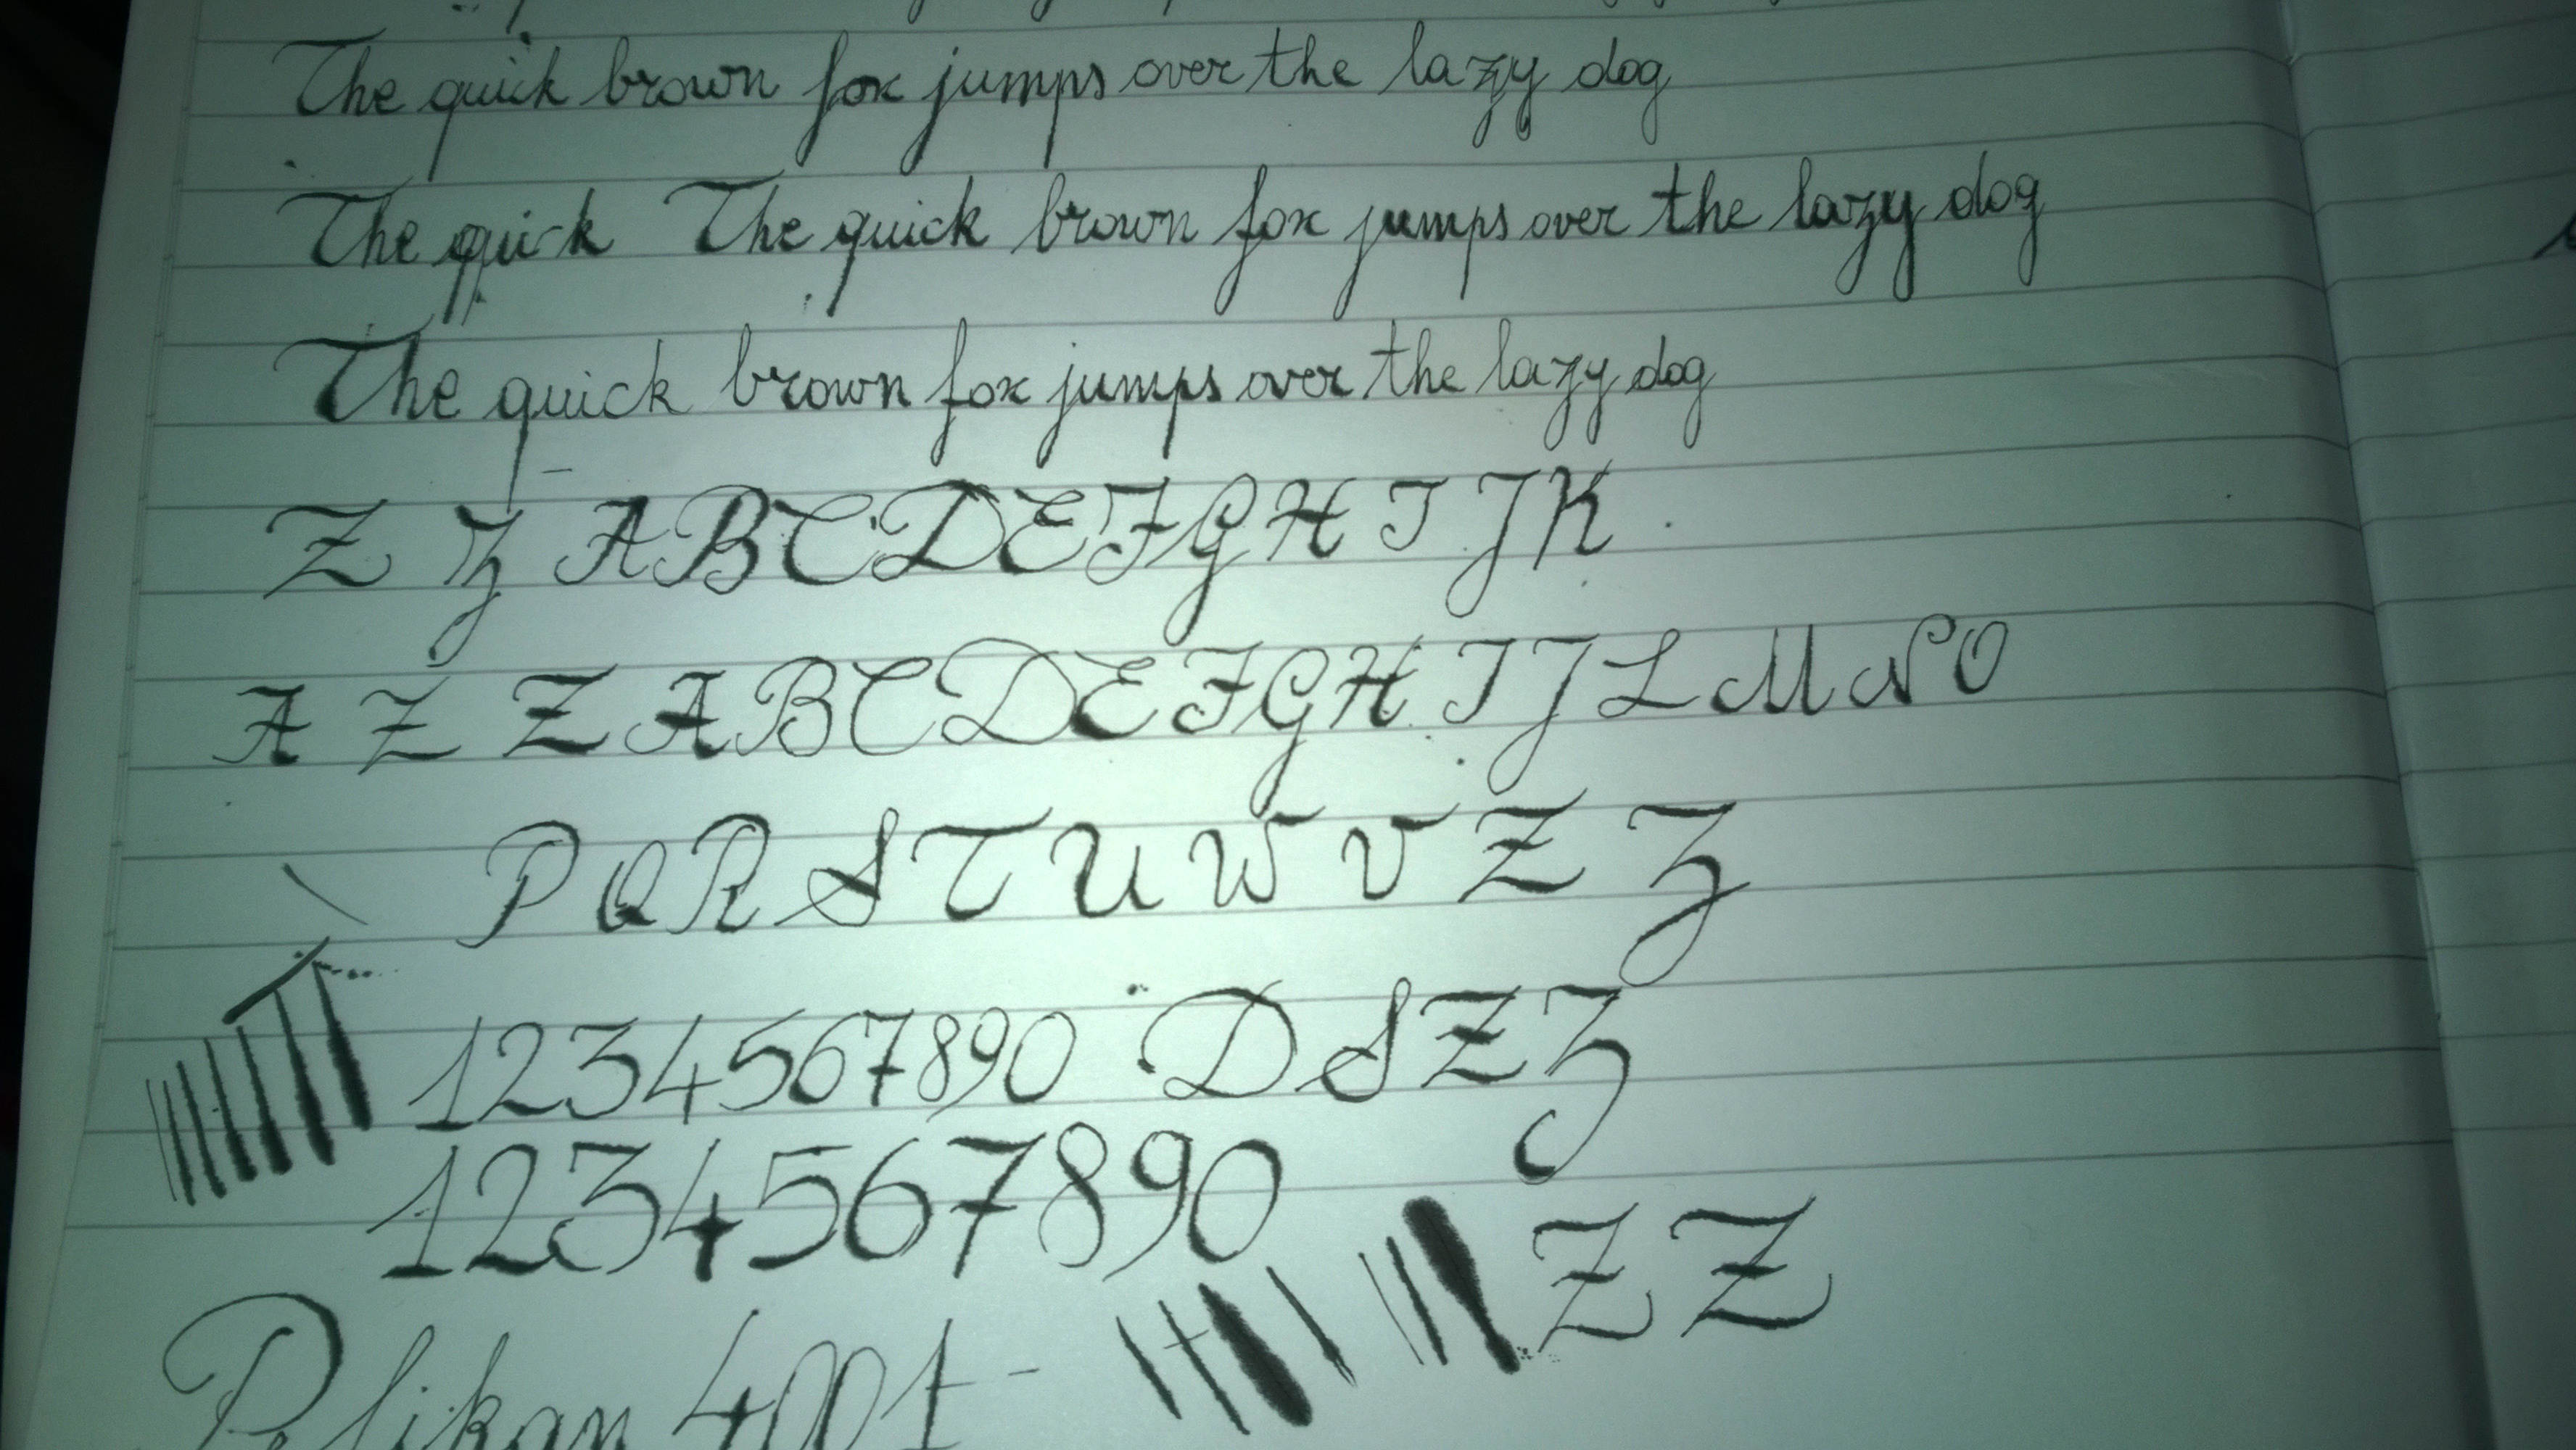 The quick brown fox jumps over the lazy dog
The quick The quick brown fox jumps over the lazy dog
The quick brown fox jumps over the lazy dog
Z Z A B C D E F G H I J K
A Z Z A B C D E F G H I J L M N O
P Q R S T U W V Z Z
1234567890 D S Z Z
1234567890
Z Z
Pelikan 4001